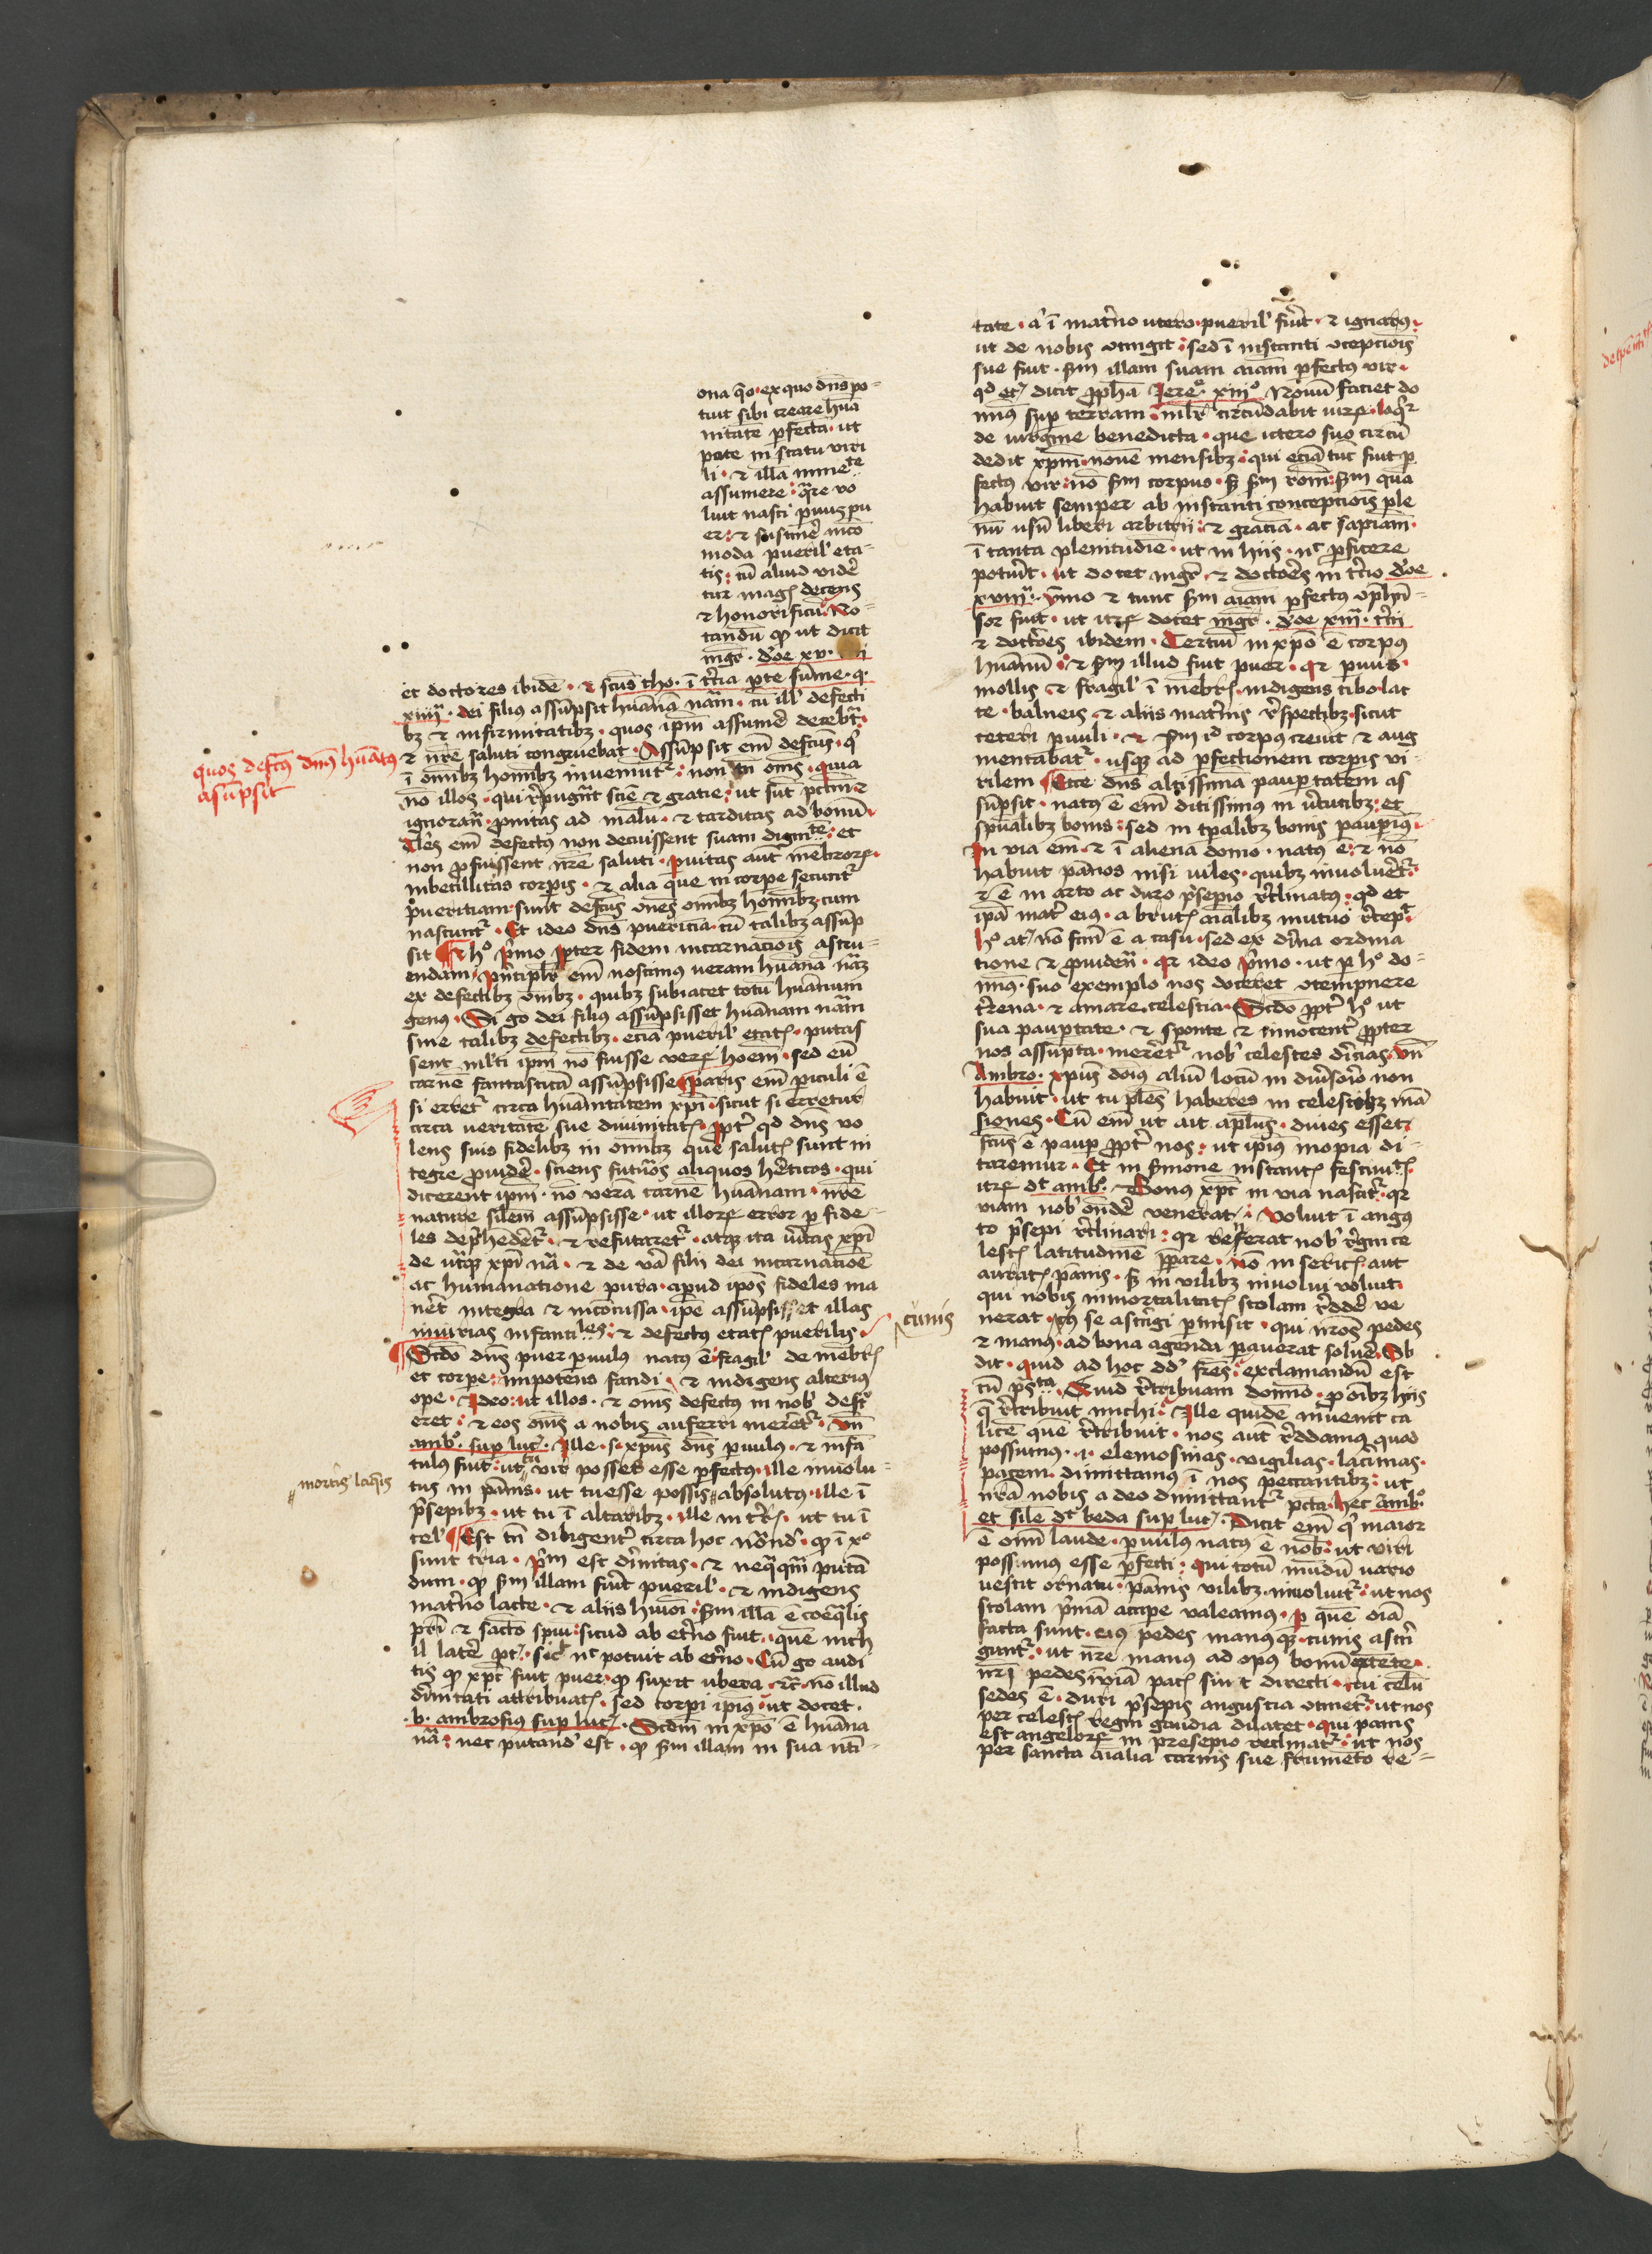 ona q̄o · ex quo dn̄s po-
tuit sibi creare huā
nitatē ꝑfectā · ut
pote in statu viri
li · ⁊ illā in mēte
assumere · q̄re vo
luit nasci ꝑuus pu
er · ⁊ sustinē inco
moda pueril' eta-
tis · cū aliud vidē
tur magꝭ decens
⁊ honorificū No-
tandū ꝙ ut dicit
mgr̄ · d'oe xv ·
et doctores ibidē · ⁊ scūs tho · ī t'cia p̄te sūme · q ·
xiiij · dei filius assūpsit huānā nām · cū ill' defecti
bꝫ ⁊ infirmitatibꝫ · quos ipm̄ assumē decebt̄
⁊ nr̄e saluti congruebat · Assūpsit em̄ defcūs · q'
ī om̄ibꝫ hom̄ibꝫ inueniunt̄ : non tn̄ om̄s · quia
nō illos · qui r̄pugn̄t scīe ⁊ gratie · ut sūt pctm̄ ⁊
ignoran̄ · ꝓnitas ad malū · ⁊ tarditas ad bonū ·
Tales em̄ defectus non decuissent suam dignitatē · et
non ꝓfuissent nr̄e saluti · ꝑuitas aut̄ mēbroꝝ ·
inbecillitas corꝑis · ⁊ alia que in corpe secunt̄
pueritiam · sunt defcūs om̄es om̄ibꝫ hom̄ibꝫ cum
nascunt̄ · Et ideo dn̄s puericiā · cū talibꝫ assūp
sit ¶ Et h° p̄mo ꝓpter fidem incarnacōis astru-
endam · p̄ncipl'r em̄ noscimus ueram huānā nām
ex defectibꝫ om̄ibꝫ · quibꝫ subiacet totū huānum
genus · Si g̊ dei filius assūpsisset huānam nām
sine talibꝫ defectibꝫ · eciā pueril' etatꝭ · putas
sent ml'ti ipm̄ nō fuisse veꝝ hoēm · sed eū
carnē fantasticā assūpsisse ¶ paris em̄ ꝑiculi ē
si erret̄ circa huānitatem xp̄i · sicut si erretur
circa ueritatē sue diuinitatꝭ · ꝓpt' qd dn̄s uo
lens suis fidelibꝫ in om̄ibꝫ que salutꝭ sunt in
tegre ꝓuidē · sciens futūos aliquos hēticos · qui
dicerent ipm̄ · nō verā carnē huānam · nr̄e
nature silem assūpsisse · ut illoꝝ error ꝑ fide-
les dep̄hēdēt̄ · ⁊ refutaret̄ · atqꝫ ita ūitas xp̄i
de ūtqꝫ xp̄i nā · ⁊ de v̄a filii dei incarnacioē
ac humanatione pura · apud ip̄os fideles ma
nēt integra ⁊ incōcussa · ipē assūpsisset illas
iniurias infantiles : ⁊ defectus etatꝭ puerilis ·
¶ Scd'o dn̄s puer ꝑuulus natus ē · fragil' de mēbrꝭ
et corpe · impotens fandi · ⁊ indigens alterius
ope · Ideo · ut illos · ⁊ om̄s defectus in nob' def'
eret : ⁊ eos om̄s a nobis auferri merēt̄ · Vn̄
amb° · sup luc · Ille · s · xp̄us dn̄s ꝑuulus · ⁊ infā
tulus fuit : ut tu vir posses esse ꝑfectus · ille inuolu-
tus in pānis · ut tu esse possis absolutus · ille ī
p̄sepibꝫ · ut tu ī altaribꝫ · ille in tr̄is · ut tu ī
cel' ¶ Est tn̄ diligent' circa hoc nōnd' · ꝙ ī x°
sunt tria · p̄m est dīnitas · ⁊ neq̄qm̄ putā
dum · ꝙ sm illam fuit pueril' · ⁊ indigens
mat̄no lacte · ⁊ aliis hui'oi · sm illā ē coeq̄lis
pr̄i ⁊ sācto spui · sicud ab et'no fuit · quē nich
il latē pt · sic nc̄ potuit ab et'no · Cū g̊ audi
tis ꝙ xpc̄ fuit puer · ꝙ suxit ubera · ⁊c̄ nō illud
dīnitati attribuatꝭ · sed corpi ip̄ius · ut docet ·
· b · ambrosius sup luc · Scdm in xp̄o ē huāna
nā : nec putand' est · ꝙ sm illam in sua nti-
quos defcūs dn̄s huānitus
asūpsit
mortis laq̄is
cunis
tate · a' ī mat̄no utero · pueril' fuit · ⁊ ignarus ·
ut de nobis ꝯtingit : sed ī instanti ꝯcepciōis
sue fuit · sm illam suam aīam ꝑfectus vir ·
qd etꝭ dicit ꝓphā Iere° xiii° Nouū faciet do
minus sup terram : mlr̄ circūdabit uirꝝ · loq̄r
de uirgine benedicta · que utero suo circū
dedit xp̄m · nouē mensibꝫ : qui eciā tūc fuit ꝑ
fectus vir · nō sm corpus · s̄ sm roēm : sm quā
habuit semper ab instanti concepciōis ple
nū usū liberi arbitrii · ⁊ gratiā · ac sapiām ·
ī tanta plenitudīe · ut in hiis · nc̄ ꝓficere
potuit · ut docet mgr̄ · ⁊ doctōēs in t'cio d'oe
xviij° · Vm̄o ⁊ tunc sm aīam ꝑfectus ꝯphn̄-
sor fuit · ut itꝝ docet mgr̄ · d'oe xiiij · t'cij
⁊ doctr̄es ibidem · Tercium in xp̄o ē corpus
huānū · ⁊ sm illud fuit puer · qr ꝑuus ·
mollis ⁊ fragil' ī mēbrꝭ · indigens cibo lac
te · balneis · ⁊ aliis mat̄nis r̄spectibꝫ · sicut
ceteri ꝑuuli · ⁊ sm id corpus creuit ⁊ aug
mentabat̄ · usqꝫ ad ꝑfectionem corpis vi-
rilem ¶ Ecce dn̄s altissima paupertatem as
sūpsit · natus ē em̄ ditissimus in ūtutibꝫ : et
spūalibꝫ bonis : sed in tp̄alibꝫ bonis paupimus ·
In via em̄ · ⁊ ī aliena domo · natus ē · ⁊ nō
habuit pānos nisi uiles · quibꝫ inuoluēt̄ ·
⁊ ē in arto ac duro p̄sepio r̄clinatus : qd et
ip̄ā mat̄ eius · a brutꝭ aīalibꝫ mutuo r̄cepit ·
h° at̄ nō fcm̄ ē a casu · sed ex dīna ordina
tione ⁊ ꝓuiden̄ · qr ideo p̄mo · ut ꝑ h° do-
minus · suo exemplo nos doceret ꝯtempnere
t̄rena · ⁊ amare celestia · Scd'o ꝓpt' h° ut
sua paupertate · ⁊ sponte ⁊ innocent' ꝓpter
nos assūpta · merēt̄ nob' celestes diuicias · vn̄
Ambro · xp̄us doīus aliū locū in diūsorio non
habuit · ut tu ples haberes in celestibꝫ mā
siones · Cū em̄ ut ait apl'us · diues esset ·
fcūs ē paup ꝓpt' nos : ut ip̄ius inopia di-
taremur · Et in sermone instantꝭ festiuitꝭ ·
itꝝ dc̄ amb° · Bonus xpc̄ in via nascit̄ · qr
viam nob' ondē venerat · Voluit ī angus
to p̄sepi r̄clinari : qr referat nob' r̄gni ce
lestꝭ latitudinē ꝓpare · nō in sericꝭ aut
auratꝭ pānis · s̄ in vilibꝫ inuolui voluit ·
qui nobis inmortalitatꝭ stolam r̄ddē ve
nerat · se astringi ꝑmisit · qui nr̄os pedes
⁊ manus · ad bona agenda ꝑauerat soluē · Sꝫ
dic · quid ad hoc dd' fr̄es : exclamandū est
cū p̄s'ta · Quid r̄tribuam domīo · ꝓ oībꝫ hiis
q̄ r̄tribuit michi : Ille quidē inuenit ca
licē que r̄tribuit · nos aut̄ r̄ddamus quod
possumus · i · elemosinas · vigilias · lac'mas ·
pacem · dimittamus ī nos peccantibꝫ : ut
nr̄a nobis a deo dimittant̄ pcta · hec amb°
et sile dc̄ beda sup luc · Dicit em̄ q' maior
ē om̄i laude · ꝑuulus natus ē nob' · ut viri
possimus esse ꝑfecti : Qui totū mūdū uario
uestit ornatu · pānis vilibꝫ inuoluit̄ : ut nos
stolam p̄mā accipe valeamus · ꝑ quē oīa
facta sunt · eius pedes manusqꝫ · cunis astri
gunt̄ · ut nr̄e manus ad opus bonū extēte ·
nr̄i pedes in viā pacꝭ sint directi · cui celū
sedes ē · duri p̄sepis angustia ꝯtinet̄ · ut nos
per celestꝭ regni gaudia dilatet · qui panis
est angeloꝝ in presepio reclinat̄ : ut nos
per sancta aīalia carnis sue frumēto re-